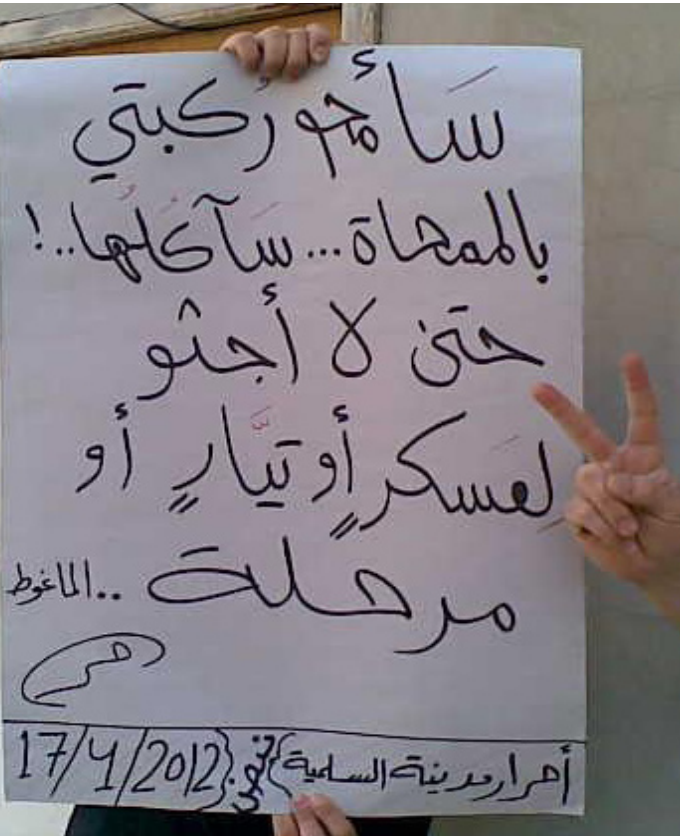 سَأمحو رُكبتي
بالممحاة...سَآكلُها..!
حتى لا أجثو
لعَسكرٍ أو تيَّارٍ أو
مرحلة ..الماغوط
أحرار مدينة السلمية 17/4/2012